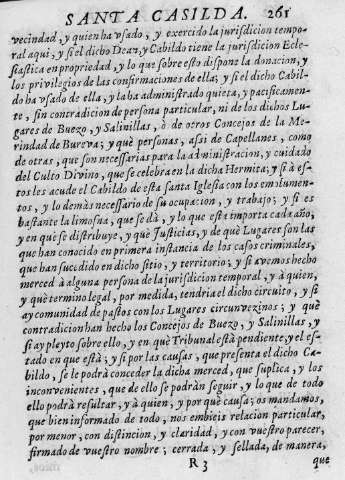 SANTA CASILDA. 261
vecindad, y quien ha vsado, y exercido la jurisdicion tempo-
ral aqui, y si el dicho Dean, y Cabildo tiene la jurisdicion Ecle-
siastica en propriedad, y lo que sobre esto dispone la donacion, y
los privilegios de las confirmaciones de ella; y si el dicho Cabil-
do ha vsado de ella, y la ha administrado quieta, y pacificamen-
te, sin contradicion de persona particular, ni de los dichos Lu-
gares de Buezo, y Salinillas, ò de otros Concejos de la Me-
rindad de Bureva; y què personas, assi de Capellanes, como
de otras, que son necessarias para la administracion, y cuidado
del Culto Divino, que se celebra en la dicha Hermita; y si à es-
tos les acude el Cabildo de esta santa Iglesia con los emolumen-
tos, y lo demàs necessario de su ocupacion, y trabajo; y si es
bastante la limosna, que se dà, y lo que esta importa cada año,
y en què se distribuye, y què Justicias, y de què Lugares son las
que han conocido en primera instancia de los casos criminales,
que han sucedido en dicho sitio, y territorio; y si avemos hecho
merced à alguna persona de la jurisdicion temporal, y à quien,
y què termino legal, por medida, tendria el dicho circuito, y si
ay comunidad de pastos con los Lugares circunvezinos; y què
contradicion han hecho los Concejos de Buezo, y Salinillas, y
si ay pleyto sobre ello, y en què Tribunal està pendiente, y el es-
tado en que està; y si por las causas, que presenta el dicho Ca-
bildo, se le podrà conceder la dicha merced, que suplica, y los
inconvenientes, que de ello se podràn seguir, y lo que de todo
ello podrà resultar, y à quien, y por què causa; os mandamos,
que bien informado de todo, nos embieis relacion particular,
por menor, con distincion, y claridad, y con vuestro parecer,
firmado de vuestro nombre; cerrada, y sellada, de manera,
R 3 que